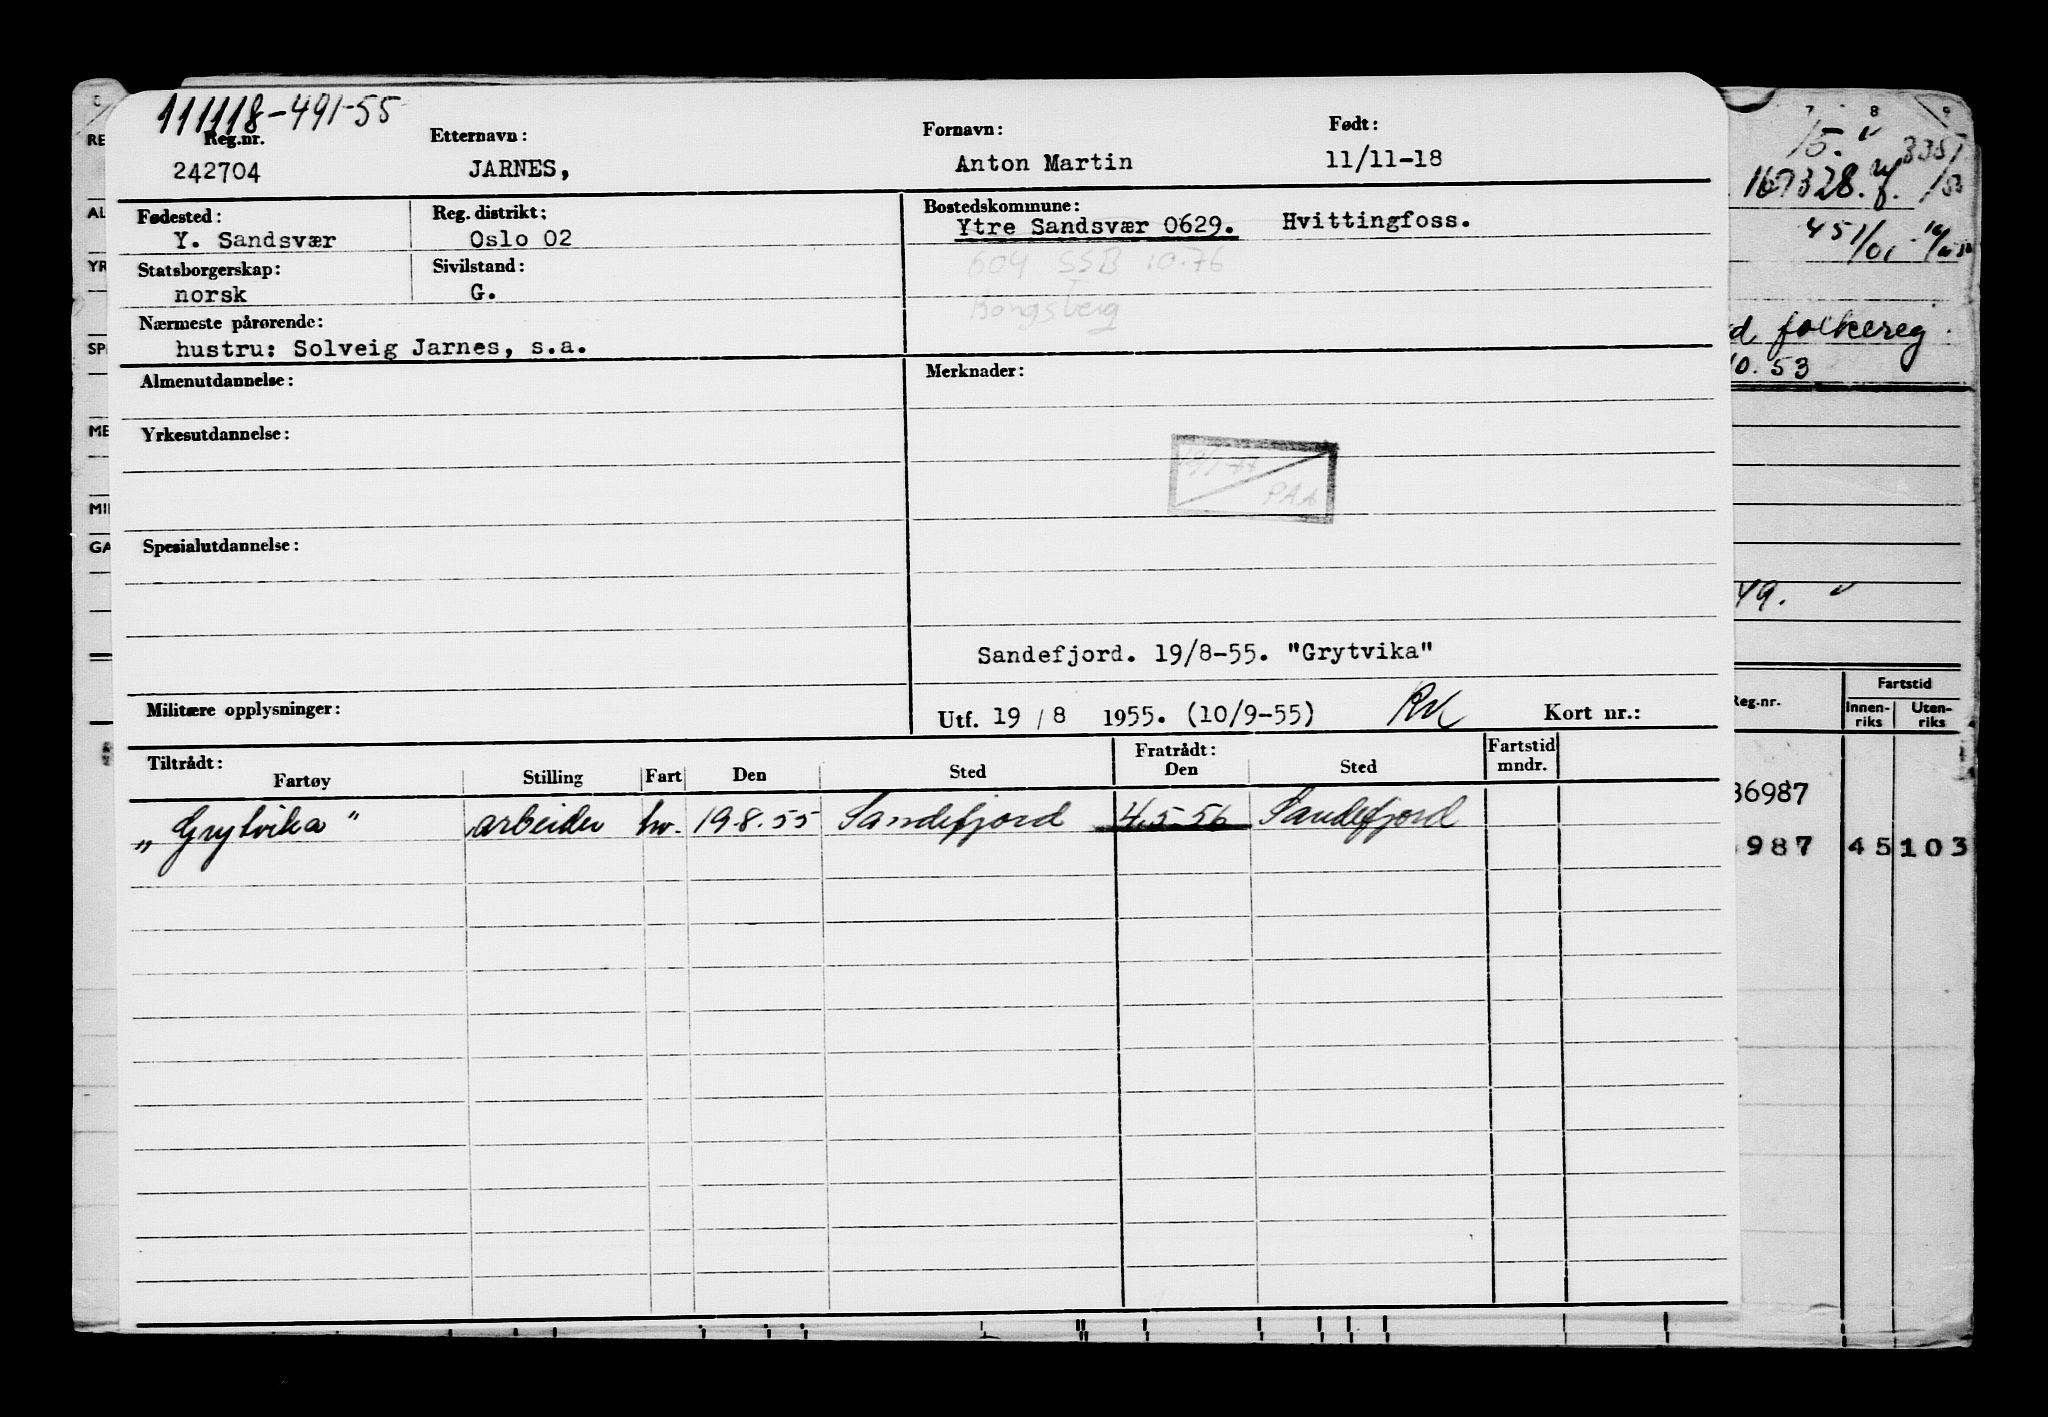 111118-491-55
Reg.nr. Etternavn: Fornavn: Født:
242704 JARNES, Anton Martin 11/11-18
Fødested: Reg. distrikt: Bostedskommune:
Y. Sandsvær Oslo 02 Ytre Sandsvær 0629. Hvittingfoss.
Statsborgerskap: Sivilstand: 604 SSB 10.76
norsk G. Kongsberg
Nærmeste pårørende:
hustru: Solveig Jarnes, s.a.
Almenutdannelse: Merknader:
Yrkesutdannelse:
PAA
Spesialutdannelse:
Sandefjord. 19/8-55. "Grytvika"
Militære opplysninger: Utf. 19 / 8 1955. (10/9-55) Kort nr.:
Tiltrådt: Fratrådt: Fartstid
Fartøy Stilling Fart Den Sted Den Sted mndr.
„Grytvika" arbeider hv. 19.8.55 Sandefjord 4.5-56 Sandefjord
RE
AL
YR
SP
ME
MI
GA
7 8 9
15.
167328.
folkereg.
10.53
49.
Reg.nr. Fartstid
Innen- Uten-
riks riks
36987
987 45 103